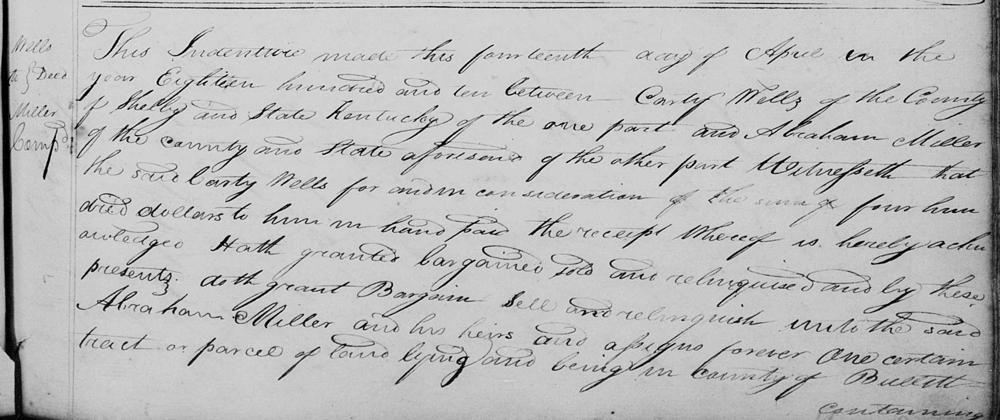 Wells
to } Deed
Miller
Comp.d
This Indenture made this fourteenth day of April in the
year Eighteen hundred and ten between Carty Wells of the County
of Shelby and State Kentucky of the one part and Abraham Miller
of the county and State aforesaid of the other part Witnesseth that
the said Carty Wells for and in consideration of the sum of four hun
dred dollars to him in hand paid the receipt whereof is hereby ackn
owledged Hath granted bargained sold and relinquised and by these
presents doth grant Bargain Sell and relinquish unto the said
Abraham Miller and his heirs and assigns forever One certain
tract or parcel of land lying and being in county of Bullitt
containing